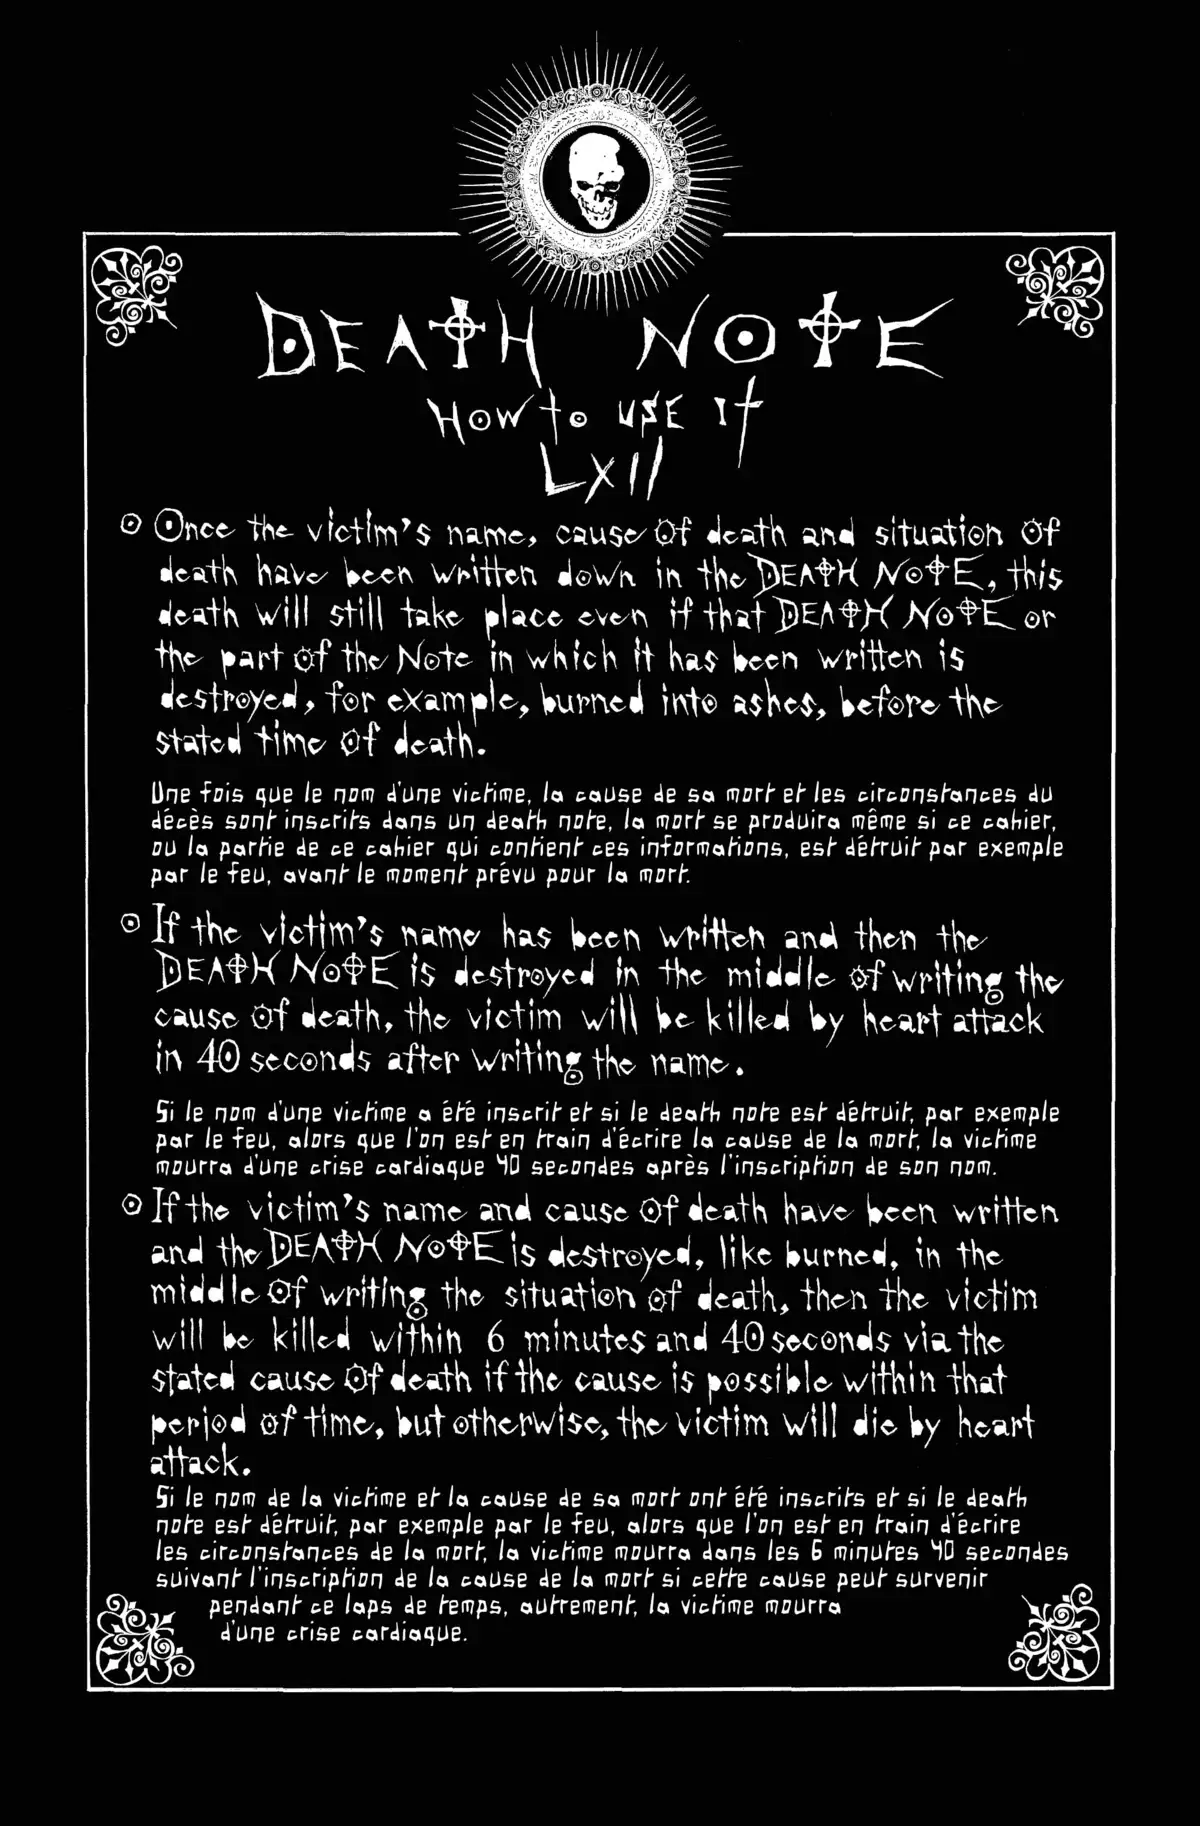 DEATH NOTE
HOW to USE It
LXII
Once the victim's name, cause of death and situation of
death have been written down in the DEATH NOTE, this
death will still take place even if that DEATH NOTE or
the part of the Note in which it has been written is
destroyed, for example, burned into ashes, before the
stated time of death.
Une fois que le nom d'une victime, la cause de sa mort et les circonstances du
décès sont inscrits dans un death note, la mort se produira même si ce cahier,
ou la partie de ce cahier qui contient ces informations, est détruit par exemple
par le feu, avant le moment prévu pour la mort.
If the victim's name has been written and then the
DEATH NOTE is destroyed in the middle of writing the
cause of death, the victim will be killed by heart attack
in 40 seconds after writing the name.
Si le nom d'une victime a été inscrit et si le death note est détruit, par exemple
par le feu, alors que l'on est en train d'écrire la cause de la mort, la victime
mourra d'une crise cardiaque 40 secondes après l'inscription de son nom.
If the victim's name and cause of death have been written
and the DEATH NOTE is destroyed, like burned, in the
middle of writing the situation of death, then the victim
will be killed within 6 minutes and 40 seconds via the
stated cause of death if the cause is possible within that
period of time, but otherwise, the victim will die by heart
attack.
Si le nom de la victime et la cause de sa mort ont été inscrits et si le death
note est détruit, par exemple par le feu, alors que l'on est en train d'écrire
les circonstances de la mort, la victime mourra dans les 6 minutes 40 secondes
suivant l'inscription de la cause de la mort si cette cause peut survenir
pendant ce laps de temps, autrement, la victime mourra
d'une crise cardiaque.